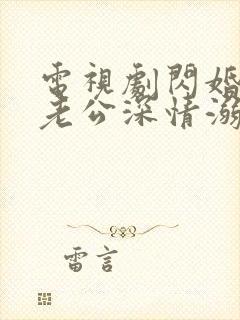 電視劇閃婚
老公深情溺
雷言